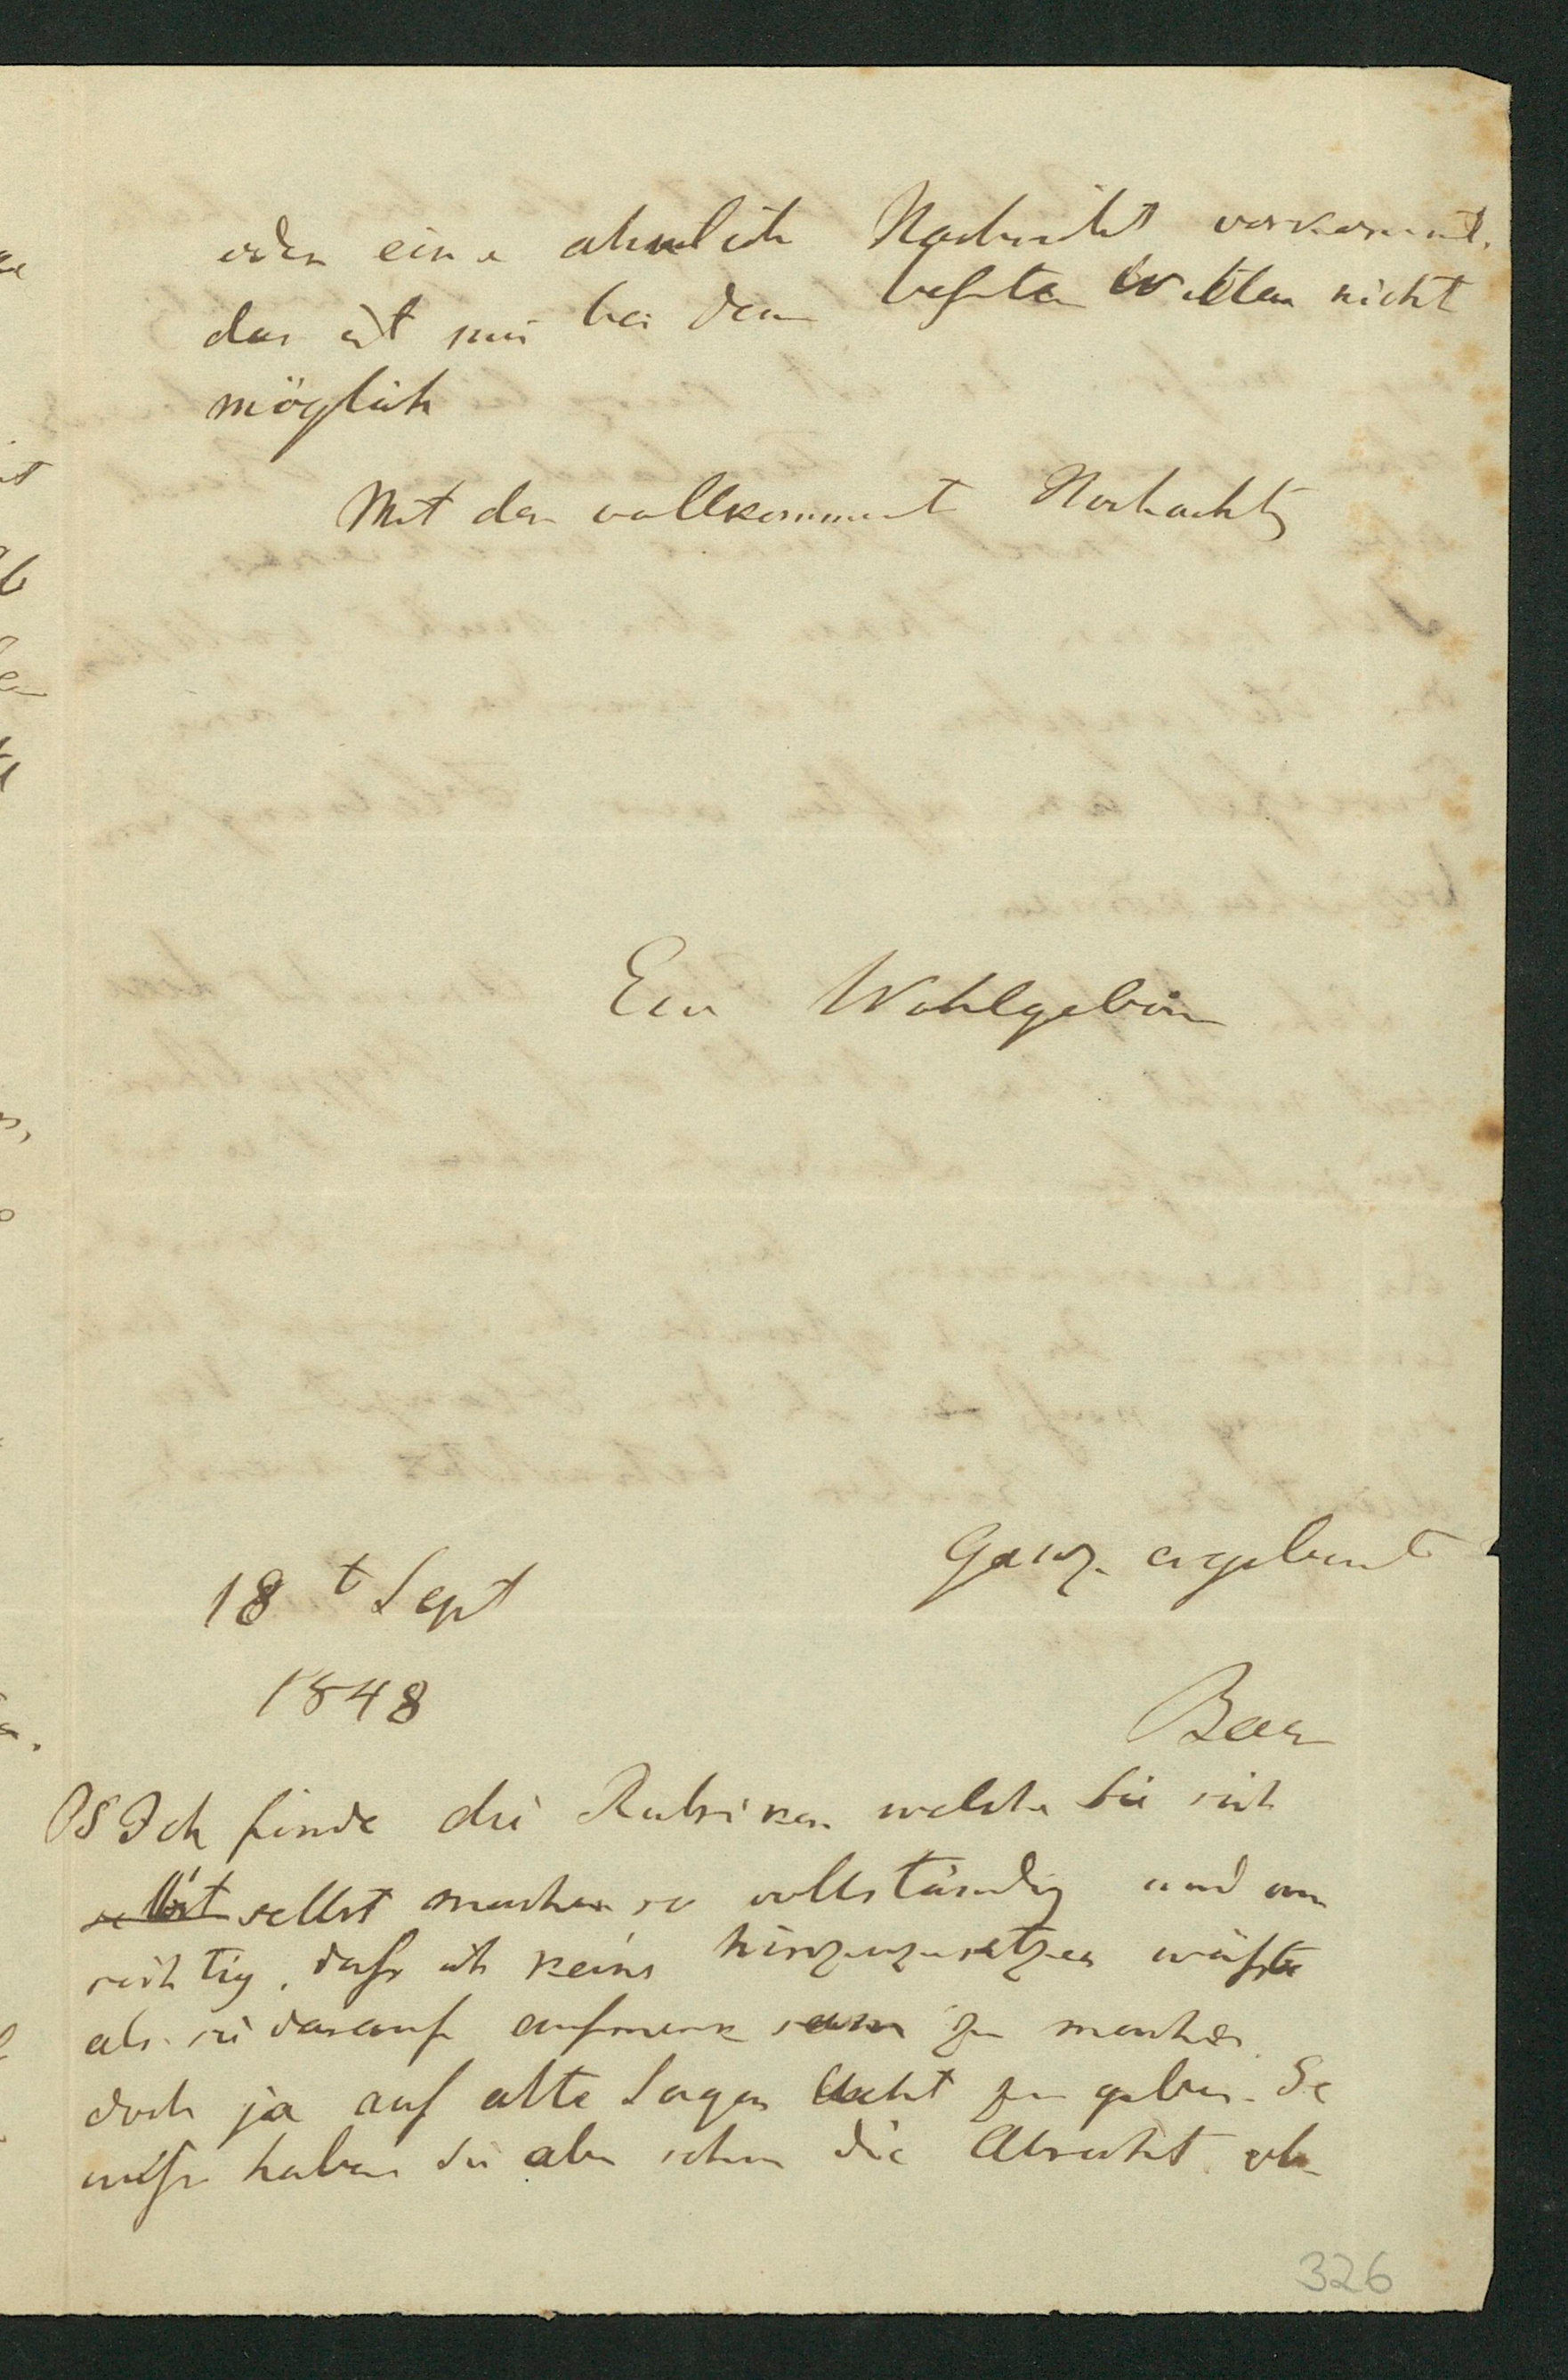 oder eine ahnlich Nachricht vorkommt.
das ist mir bei dem besten Willen nicht
möglich
Mit der vollkommenst Hochachtg
Eur Wohlgeborn
Ganz ergebenst
18 t Sept
1848
Baer
PS Ich finde die Rubriken welche Sie sich
selbst selbst machen so vollständig und
richtig, dass ich keins hinzuzusetzen wüsste
als Sie darauf aufmerksam zu machen.
doch ja auf alte Sagen Acht zu geben. Ge
wiss haben Sie aber schon die Absicht
326